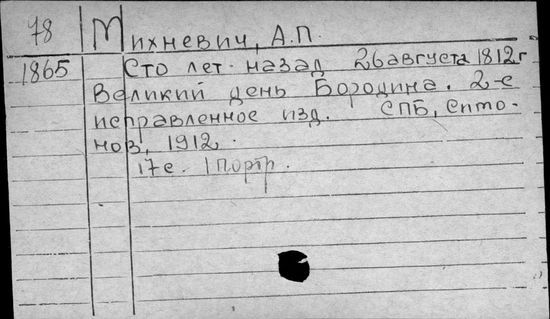 78 Михневич, А.П.
1865 Сто лет назад 26 августа 1812 г
Великий день Бородина. 2-е
исправленное изд. СПБ, Сито-
нов, 1912.
17с. 1 портр.